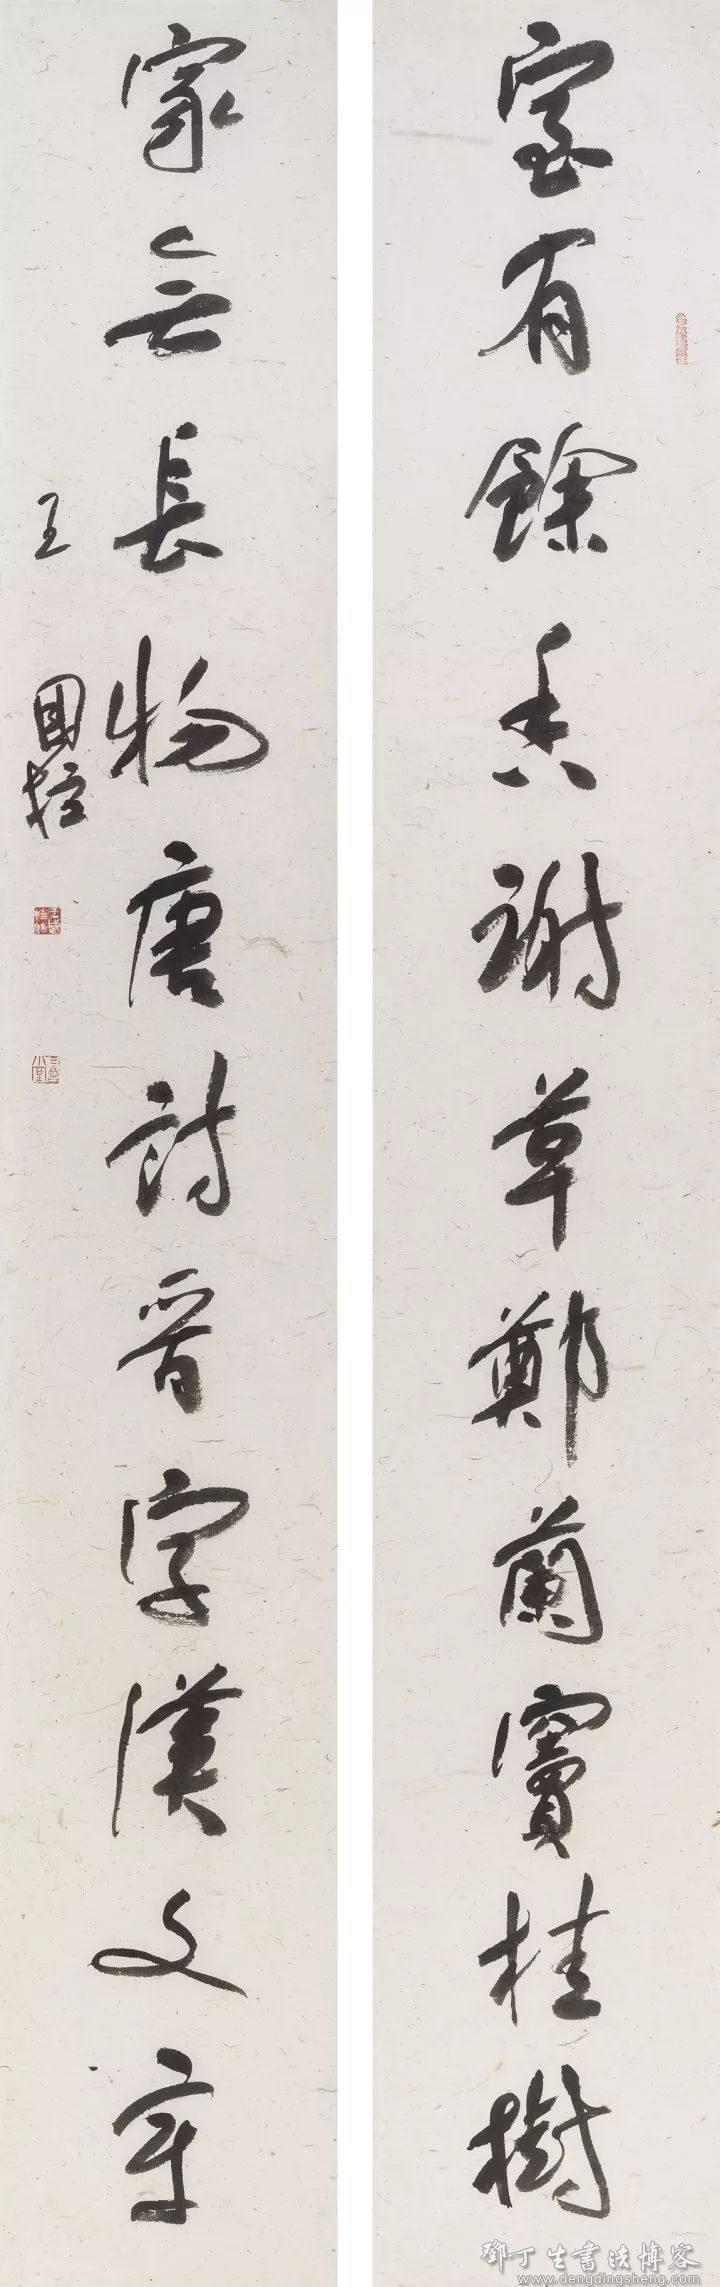 室有餘香謝草鄭蘭竇桂樹
家無長物唐詩晉字漢文章
王國柱
鄧丁生書法博客
www.dengdingsheng.com